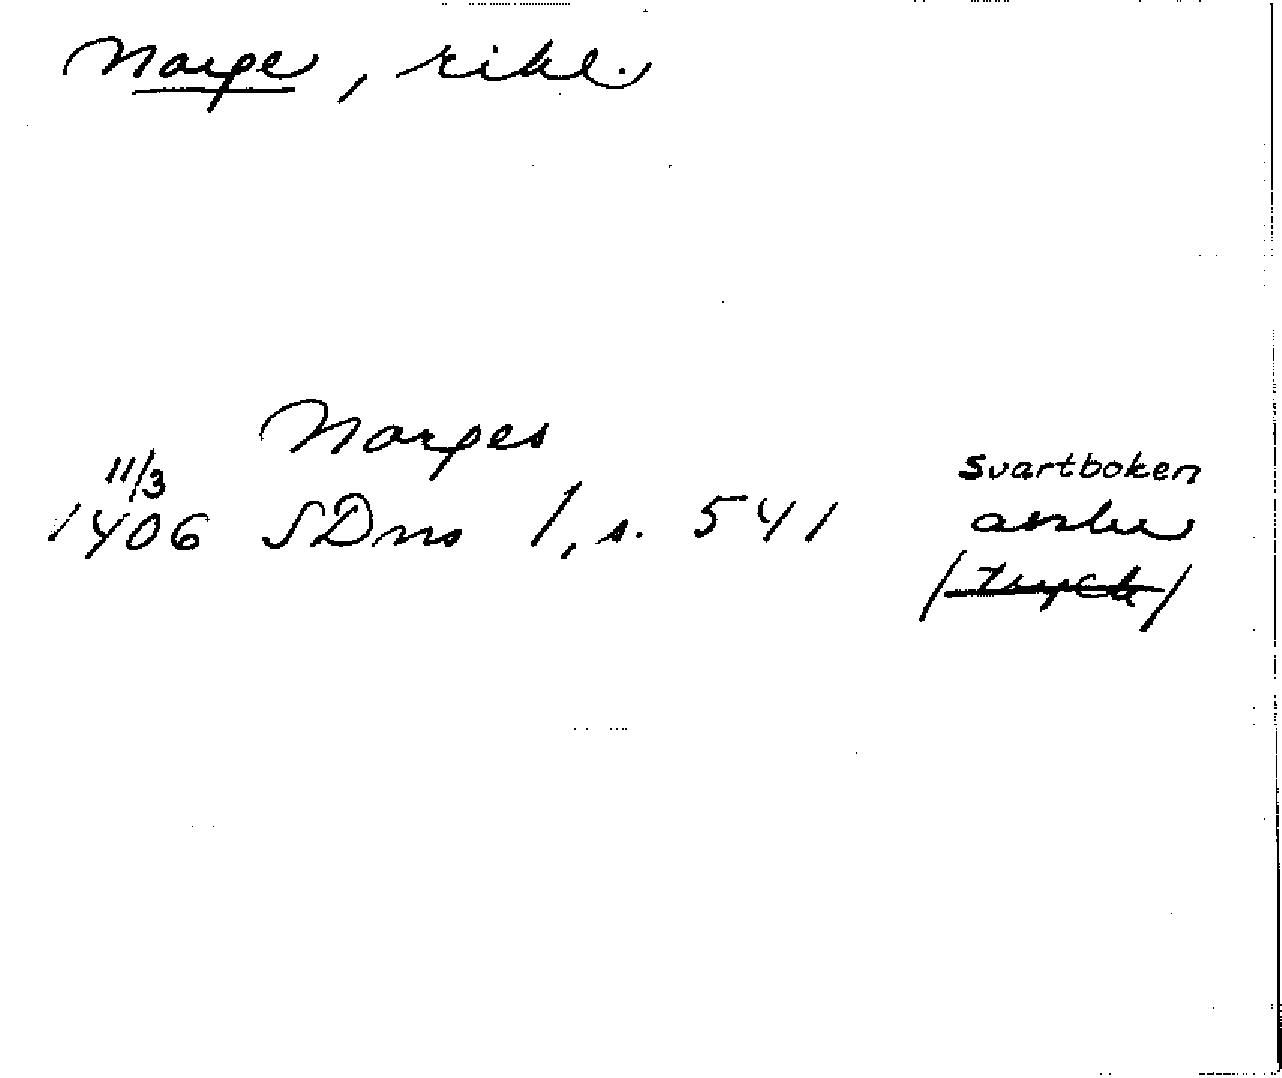 Norge, rike.
Norges
11/3
1406 SDns 1, s. 541
Svartboken
avskr
/tryck/